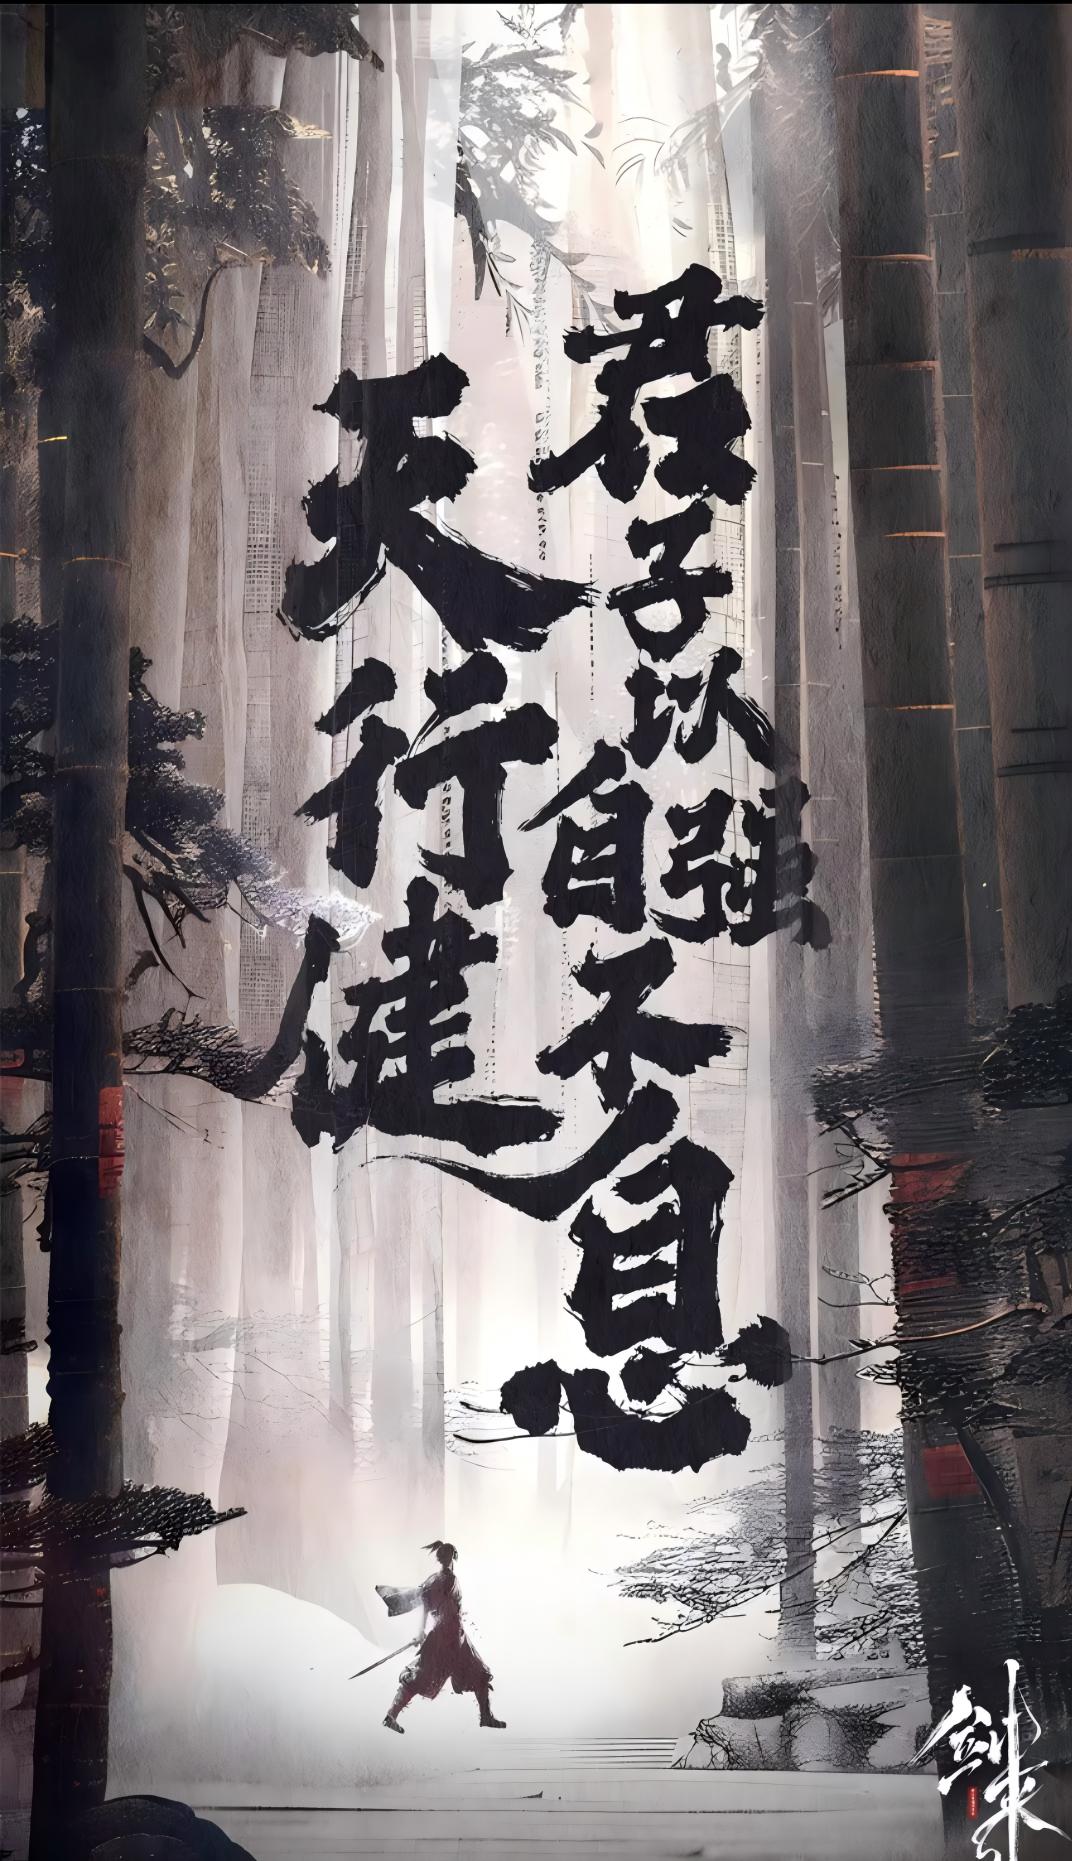 天行健
君子以自强不息
剑来